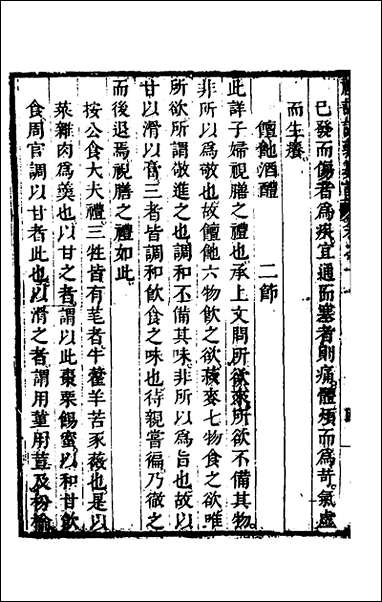 已發而傷者為疾宜通而塞者則痛體煩而為苛氣虛
而生癢
饘飽酒醴　二節
此詳子婦視膳之禮也承上文問所欲來所欲不備其物
非所以為敬也故饘飽六物飲之欲蕡麥七物食之欲唯
所欲所謂敬進之也調和不備其味非所以為旨也故以
甘以滑以膏三者皆調和飲食之味也待親嘗徧乃徹之
而後退焉視膳之禮如此
按公食大夫禮三牲皆有芼者牛藿羊苦豕薇也是以
菜雜肉為羹也以甘之者謂以此棗栗餳蜜以和甘飲
食周官調以甘者此也以滑之者謂用菫用荁及枌榆